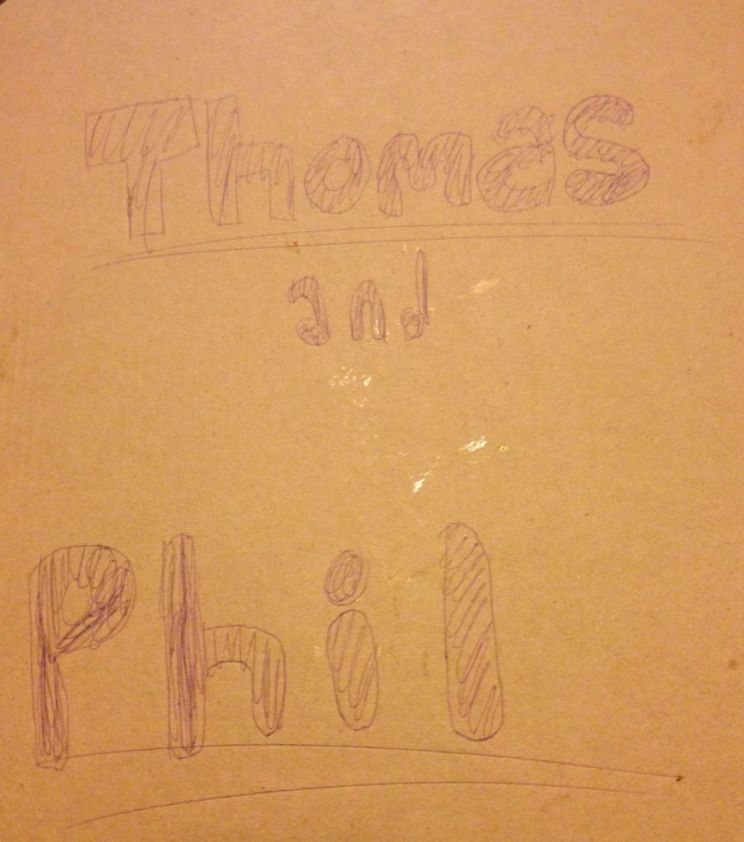 Thomas
and
Phil